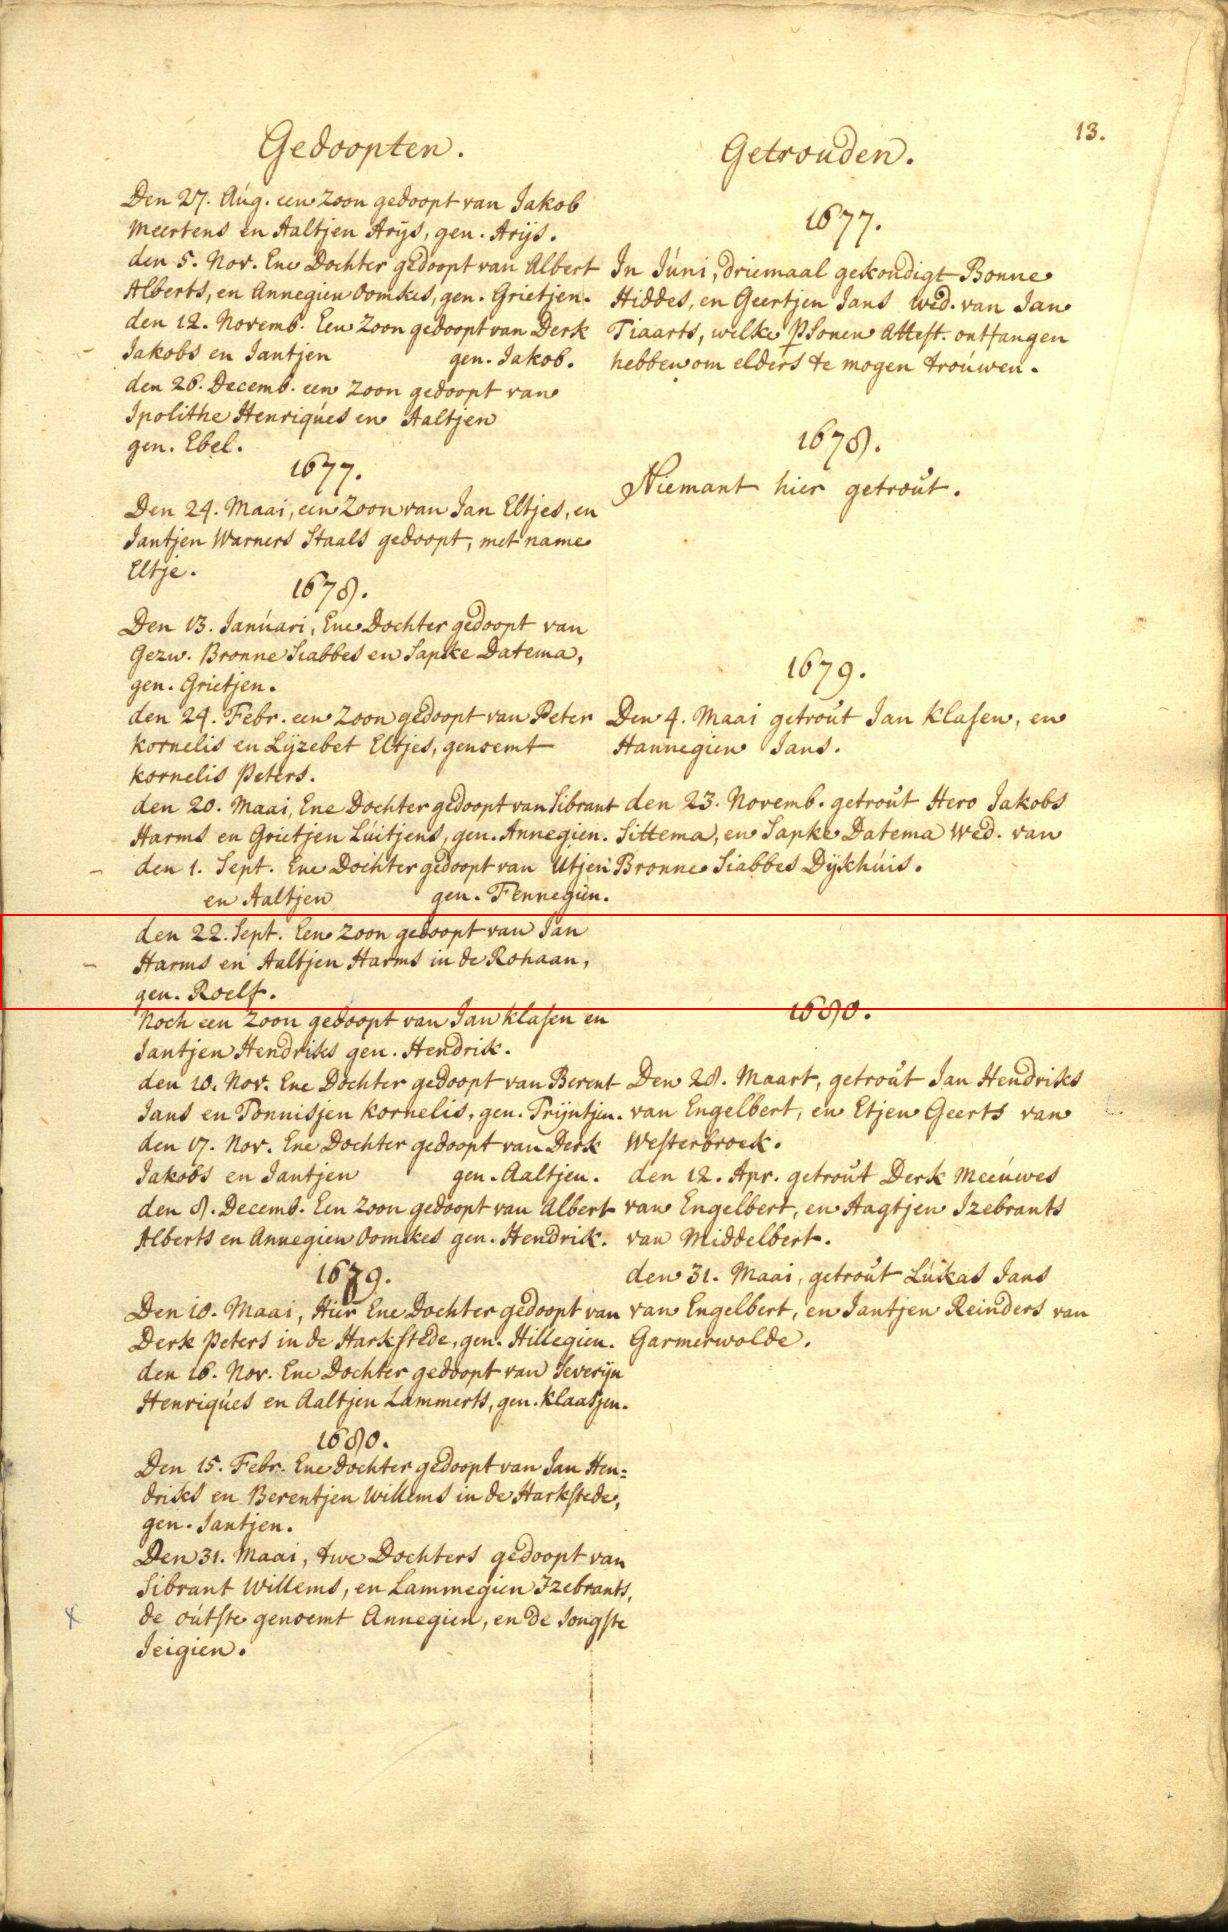 13.
Gedoopten.
Den 27. Aug. een Zoon gedoopt van Jakob
Meertens en Aaltjen Arijs, gen. Arijs.
den 5. Nov. Ene Dochter gedoopt van Albert
Alberts, en Annegien Oomkes, gen. Grietjen.
den 12. Novemb. Een Zoon gedoopt van Derk
Jakobs en Jantjen gen. Jakob.
den 26. Decemb. een Zoon gedoopt van
Ipolithe Henriques en Aaltjen
gen. Ebel.
1677.
Den 24. Maai, een Zoon van Jan Eltjes, en
Jantjen Warners Staals gedoopt, met name
Eltje.
1678.
Den 13. Januari, Ene Dochter gedoopt van
Gezw. Bronne Siabbes en Sapke Datema,
gen. Grietjen.
den 24. Febr. een Zoon gedoopt van Peter
Kornelis en Lijzebet Eltjes, genoemt
Kornelis Peters.
den 20. Maai, Ene Dochter gedoopt van Sibrant
Harms en Grietjen Luitjens, gen. Annegien.
den 1. Sept. Ene Dochter gedoopt van Utjen
en Aaltjen gen. Fennegien.
den 22. Sept. Een Zoon gedoopt van Jan
Harms en Aaltjen Harms in de Rohaan,
gen. Roelf.
Noch een Zoon gedoopt van Jan Klasen en
Jantjen Hendriks gen. Hendrik.
den 10. Nov. Ene Dochter gedoopt van Berent
Jans en Tonnisjen Kornelis, gen. Trijntjen.
den 17. Nov. Ene Dochter gedoopt van Derk
Jakobs en Jantjen gen. Aaltjen.
den 8. Decemb. Een Zoon gedoopt van Albert
Alberts en Annegien Oomkes gen. Hendrik.
1679.
Den 18. Maai, Hier Ene Dochter gedoopt van
Derk Peters in de Harkstede, gen. Hillegien.
den 16. Nov. Ene Dochter gedoopt van Severijn
Henriques en Aaltjen Lammerts, gen. Klaasjen.
1680.
Den 15. Febr. Ene Dochter gedoopt van Jan Hen=
driks en Berentjen Willems in de Harkstede,
gen. Jantjen.
Den 31. Maai, twe Dochters gedoopt van
Sibrant Willems, en Lammegien Izebrants,
de outste genoemt Annegien, en de Jongste
Jeigien.
Getrouden.
1677.
In Juni, driemaal gekondigt Bonne
Hiddes, en Geertjen Jans wed. van Jan
Tiaarts, welke Psonen Attest. ontfangen
hebben om elders te mogen trouwen.
1678.
Niemant hier getrout.
1679.
Den 4. Maai getrout Jan Klasen, en
Hannegien Jans.
den 23. Novemb. getrout Hero Jakobs
Sittema, en Sapke Datema Wed. van
Bronne Siabbes Dijkhuis.
1680.
Den 28. Maart, getrout Jan Hendriks
van Engelbert, en Etjen Geerts van
Westerbroek.
den 12. Apr. getrout Derk Meeuwes
van Engelbert, en Aagtjen Izebrants
van Middelbert.
den 31. Maai, getrout Lukas Jans
van Engelbert, en Jantjen Reinders van
Garmerwolde.